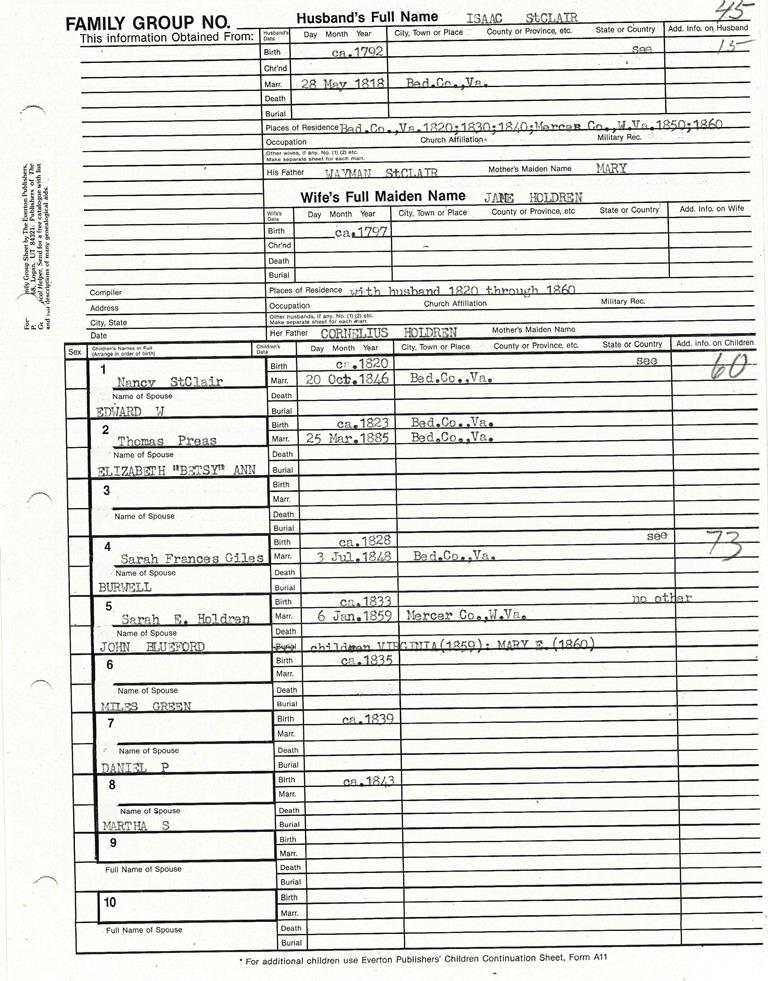 FAMILY GROUP NO. Husband's Full Name ISAAC StCLAIR 45
This information Obtained From: Husband's Data Day Month Year City, Town or Place County or Province, etc. State or Country Add. Info on Husband
Birth ca.1792 see 15
Chr'nd
Marr. 28 May 1818 Bed.Co.,Va.
Death
Burial
Places of Residence Bed.Co.,Va.1820;1830;1840;Mercer Co.,W.Va.1850;1860
Occupation Church Affiliation Military Rec.
Other wives, if any. No. (1) (2) etc.
Make separate sheet for each marr.
His Father WAYMAN StCLAIR Mother's Maiden Name MARY
Wife's Full Maiden Name JANE HOLDREN
Wife's Data Day Month Year City, Town or Place County or Province, etc State or Country Add. Info. on Wife
Birth ca.1797
Chr'nd
Death
Burial
Compiler Places of Residence with husband 1820 through 1860
Address Occupation Church Affiliation Military Rec.
City, State Other husbands, if any. No. (1) (2) etc.
Make separate sheet for each marr.
Date Her Father CORNELIUS HOLDREN Mother's Maiden Name
Sex Children's Names in Full (Arrange in order of birth) Children's Data Day Month Year City, Town or Place County or Province, etc. State or Country Add. info on Children
1 Birth ca.1820 see 60
Nancy StClair Marr. 20 Oct.1846 Bed.Co.,Va.
Name of Spouse Death
EDWARD W Burial
2 Birth ca.1823 Bed.Co.,Va.
Thomas Preas Marr. 25 Mar.1885 Bed.Co.,Va.
Name of Spouse Death
ELIZABETH "BETSY" ANN Burial
3 Birth
Marr.
Name of Spouse Death
Burial
4 Birth ca.1828 see 73
Sarah Frances Giles Marr. 3 Jul.1848 Bed.Co.,Va.
Name of Spouse Death
BURWELL Burial
5 Birth ca.1833 no other
Sarah E. Holdren Marr. 6 Jan.1859 Mercer Co.,W.Va.
Name of Spouse Death
JOHN BLUEFORD Burial children VIRGINIA(1859); MARY E.(1860)
6 Birth ca.1835
Marr.
Name of Spouse Death
MILES GREEN Burial
7 Birth ca.1839
Marr.
Name of Spouse Death
DANIEL P Burial
8 Birth ca.1843
Marr.
Name of Spouse Death
MARTHA S Burial
9 Birth
Marr.
Full Name of Spouse Death
Burial
10 Birth
Marr.
Full Name of Spouse Death
Burial
* For additional children use Everton Publishers' Children Continuation Sheet, Form A11
For
mily Group Sheet by The Everton Publishers,
P. 68, Logan, UT 84321. Publishers of The
G cal Helper. Send for a free catalogue with list
and descriptions of many genealogical aids.